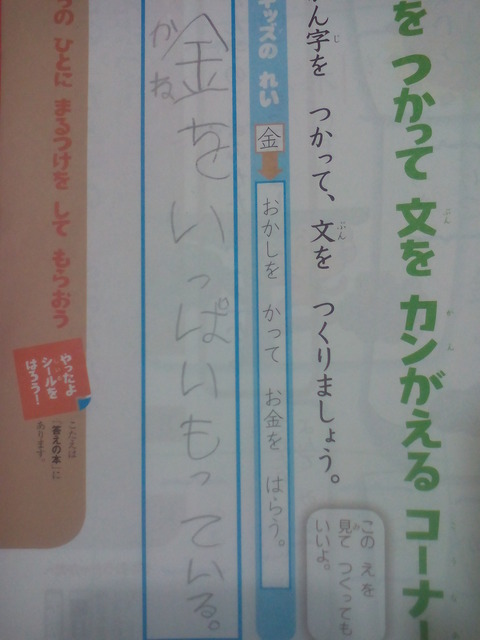 を つかって 文を カンがえる コーナー
ぶん
かん
ん字を つかって、文を つくりましょう。
じ
ぶん
この えを
見て つくっても
いいよ。
み
キッズの れい
金
おかしを かって お金を はらう。
金をいっぱいもっている。
かね
の ひとに まるつけを して もらおう
やったよ
シールを
はろう!
こたえは
「答えの本」に
あります。